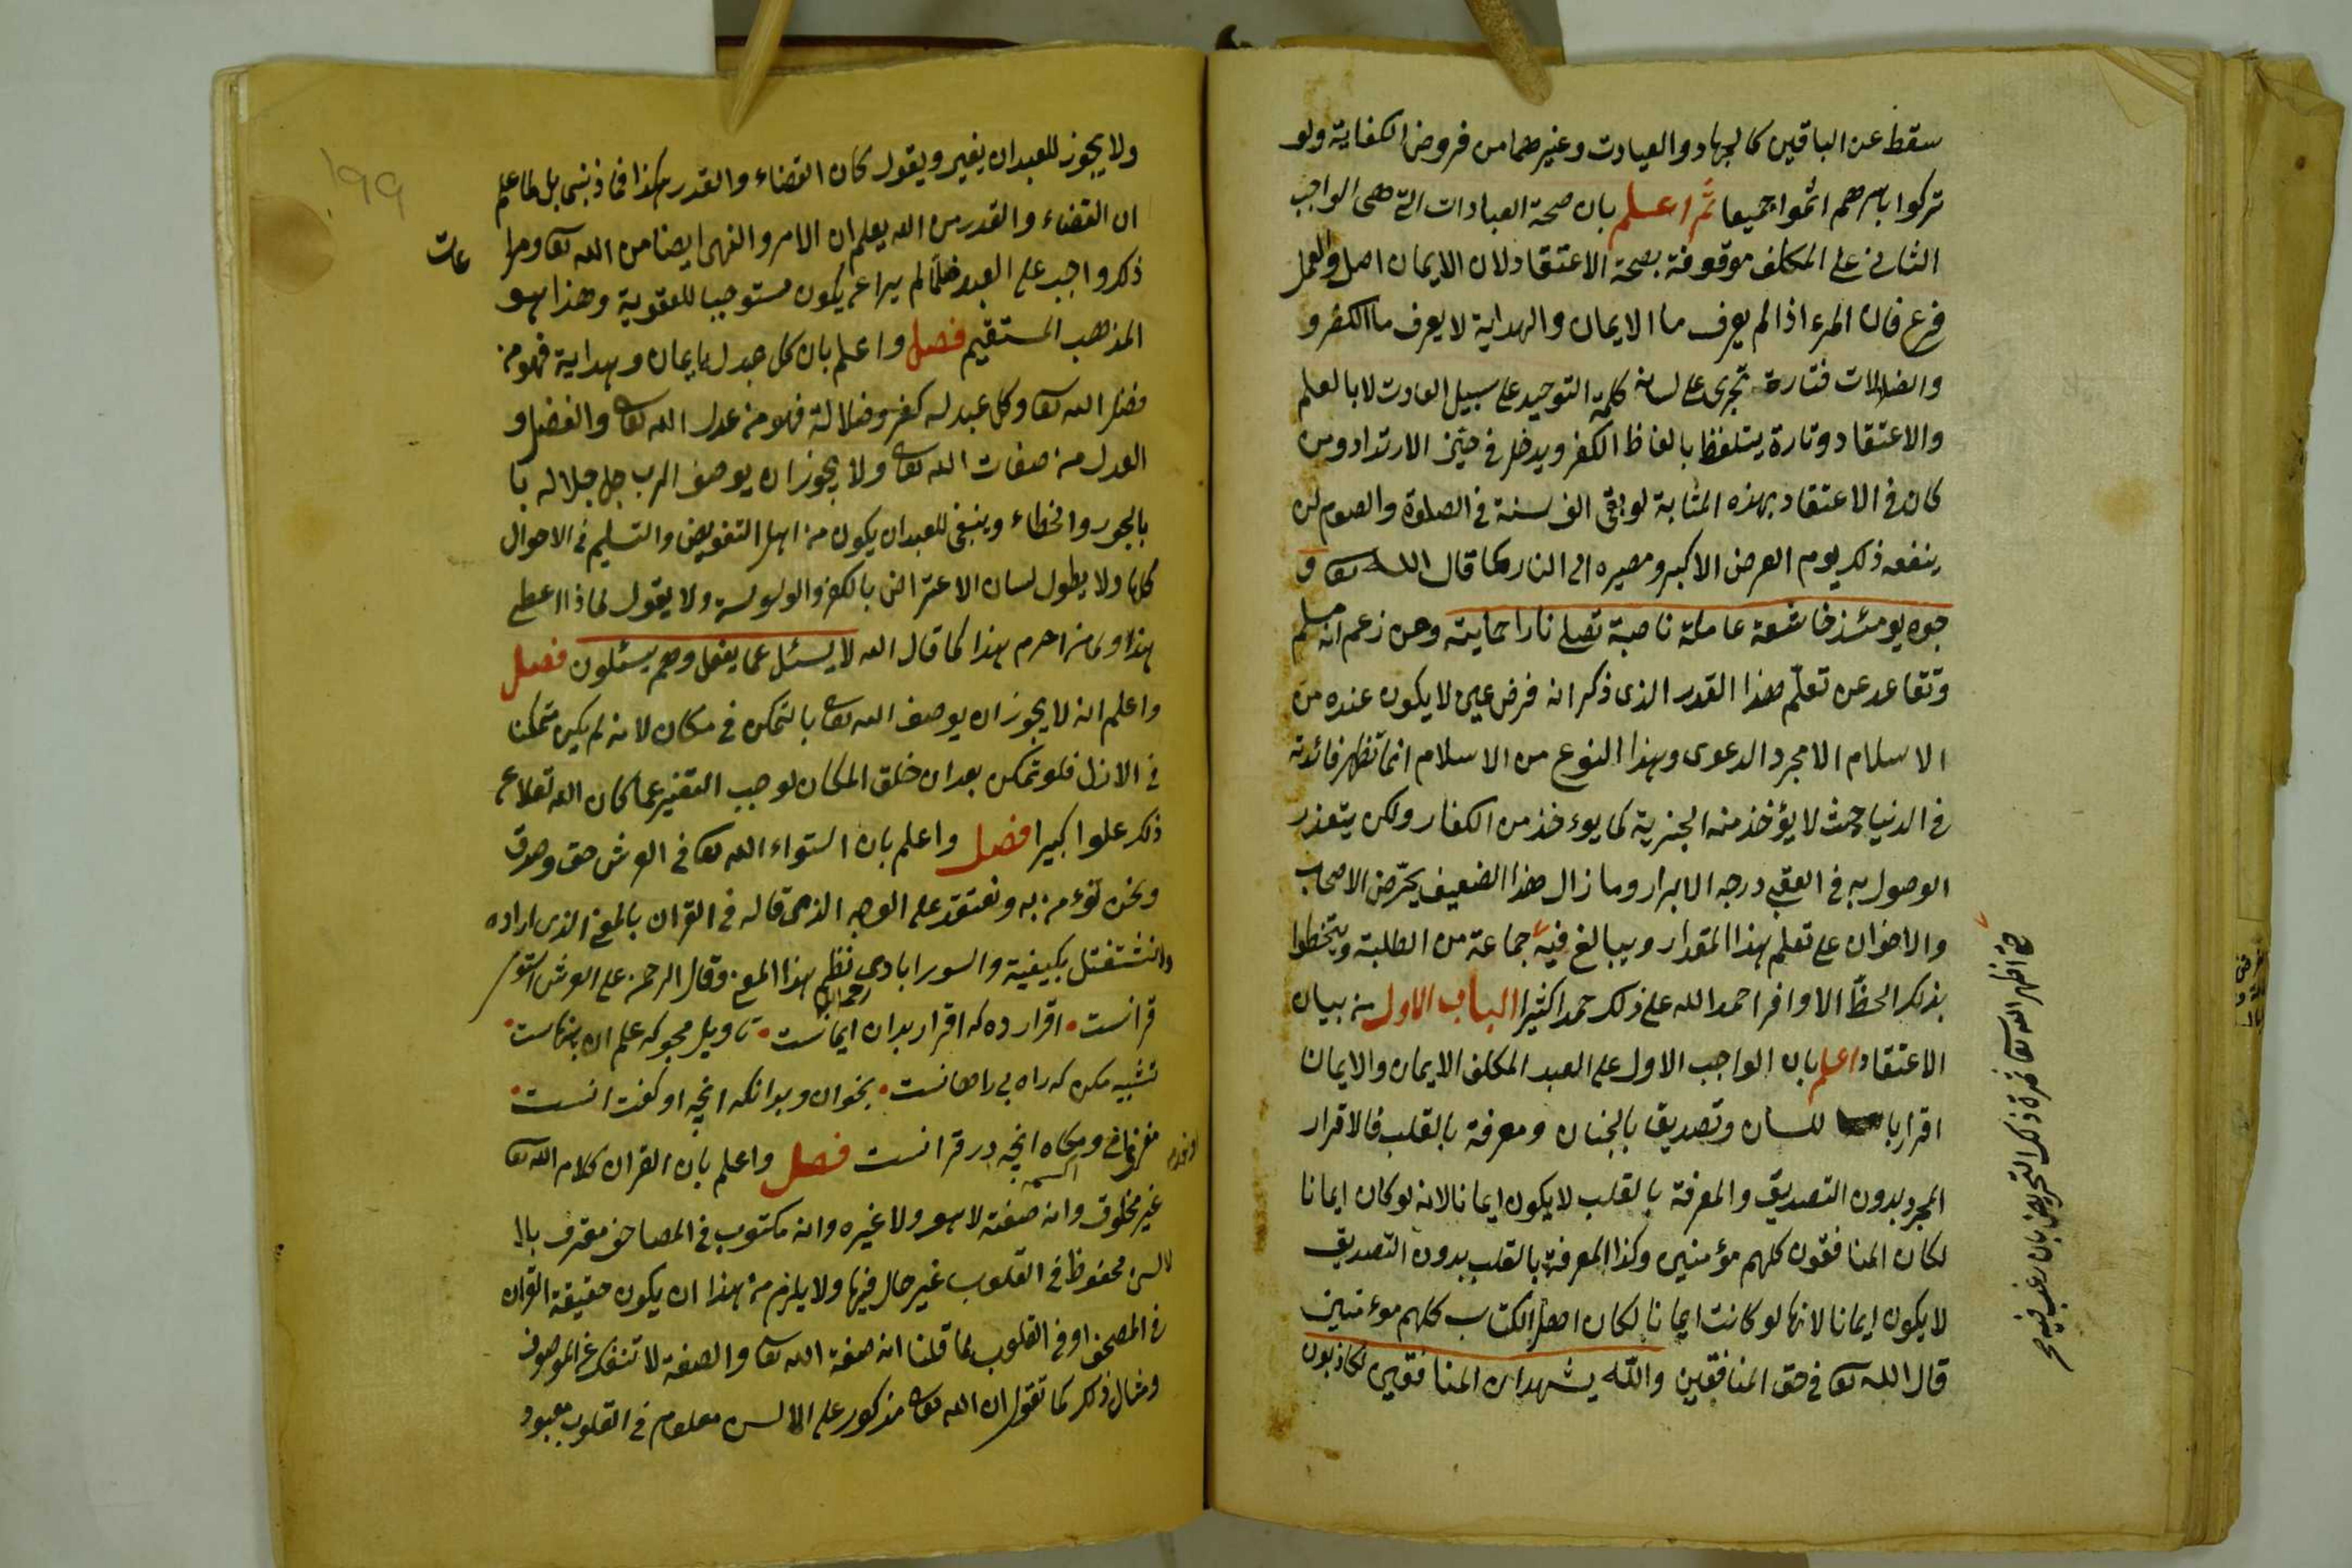 سقط عن الباقين كالجهاد والعيادت وغيرهما من فروض الكفاية ولو
تركوا باسرهم اثموا جميعا ثم اعلم بان صحة العبادات التى هى الواجب
الثانى على المكلف موقوفة بصحة الاعتقاد لان الايمان اصل والعمل
فرع فان المرء اذا لم يعرف ما الايمان والهداية لا يعرف ما الكفر و
والضلالات فتارة تجرى على لسانه كلمة التوحيد على سبيل العادت لا بالعلم
والاعتقاد وتارة يتلفظ بالفاظ الكفر ويدخل فى حيّز الارتداد ومن
كان فى الاعتقاد بهذه المثابة لو بقى الف سنة فى الصلوة والصوم لن
ينفعه ذلك يوم العرض الاكبر ومصيره الى النار كما قال الله تعا و
جوه يومئذ خاشعة عاملة ناصبة تصلى نارا حاميته ومن زعم انه مسلم
وتقاعد عن تعلّم هذا القدر الذى ذكر انه فرض عين لا يكون عنده من
الاسلام الا مجرد الدعوى وبهذا النوع من الاسلام انما تظهر فائدته
فى الدنيا حيث لا يؤخذ منه الجزية كما يوءخذ من الكفار ولكن يتعذر
الوصول به فى العقبى درجه الابرار وما زال هذا الضعيف يحرّض الاصحاب
والاخوان على تعلم بهذا المقدار ويبالغ فيه جماعة من الطلبة ويتخطوا
بذلك الحظّ الاوافر احمد الله على ذلك حمدا كثيرا الباب الاول فى بيان
الاعتقاد اعلم بان الواجب الاول على العبد المكلف الايمان والايمان
اقرار باللسان وتصديق بالجنان ومعرفة بالقلب فالاقرار
المجرد بدون التصديق والمعرفة بالقلب لا يكون ايمانا لانه لو كان ايمانا
لكان المنافقون كلهم مؤمنين وكذا المعرفة بالقلب بدون التصديق
لا يكون ايمانا لانها لو كانت ايمانا لكان اهل الكتاب كلهم موءمنين
قال الله تعا فى حق المنافقين والله يشهد ان المنافقين لكاذبون
حتى اظهر الله تعا ثمرة ذلك التحريض بان رغب فيه صح
199
ولا يجوز للعبد ان يغير ويقول كان القضاء والقدر هكذا فما ذنبى بل كما علم
ان القضاء والقدر من الله يعلم ان الامر والنهى ايضا من الله تعا ومرا
عات
ذلك واجب على العبد فلما لم يراع يكون مستوجبا للعقوبة وهذا هو
المذهب المستقيم فصل واعلم بان كل عبد له ايمان وهداية فهو من
فضل الله تعا وكل عبد له كفر وضلالة فهو من عدل الله تعا والفضل و
العدل من صفات الله تعا ولا يجوز ان يوصف الرب جل جلاله با
بالجور والخطاء وينبغى للعبد ان يكون من اهل التفويض والتسليم فى الاحوال
كلها ولا يطول لسان الاعتراض بالكفر والوسوسة ولا يقول لماذا اعطى
هذا ولماذا حرم هذا كما قال الله لا يسئل عما يفعل وهم يسئلون فصل
واعلم انه لا يجوز ان يوصف الله تعا بالتمكن فى مكان لانه لم يكن متمكنا
فى الازل فلو تمكن بعد ان خلق المكان لوجب التغير عما كان الله تعالى عن
ذلك علوا كبيرا فصل واعلم بان استواء الله تعا فى العرش حق وصدق
ونحن نؤمن به ونعتقد على الوجه الذى قاله فى القران بالمعنى الذى اراده
ولا نشتغل بكيفية والسورابادى رحمه الله نظم بهذا المعنى وقال الرحمن على العرش استوى
قرانست اقرار ده كه اقرار بدان ايمانست تاويل مجو كه علم ان پنهانست
تشبيه مكن كه راه بى راهانست بخوان وبدانكه انچه او گفت انست
انچه در قرانست فصل واعلم بان القران كلام الله تعا
غير مخلوق وانه صفته لا هو ولا غيره وانه مكتوب فى المصاحف مقرو بالا
لسن محفوظ فى القلوب غير حال فيها ولا يلزم من هذا ان يكون حقيقة القران
فى المصحف او فى القلوب لما قلنا انه صفة الله تعا والصفة لا تنفك عن الموصوف
ومثال ذلك كما تقول ان الله تعا مذكور على الالسن معلوم فى القلوب معبود